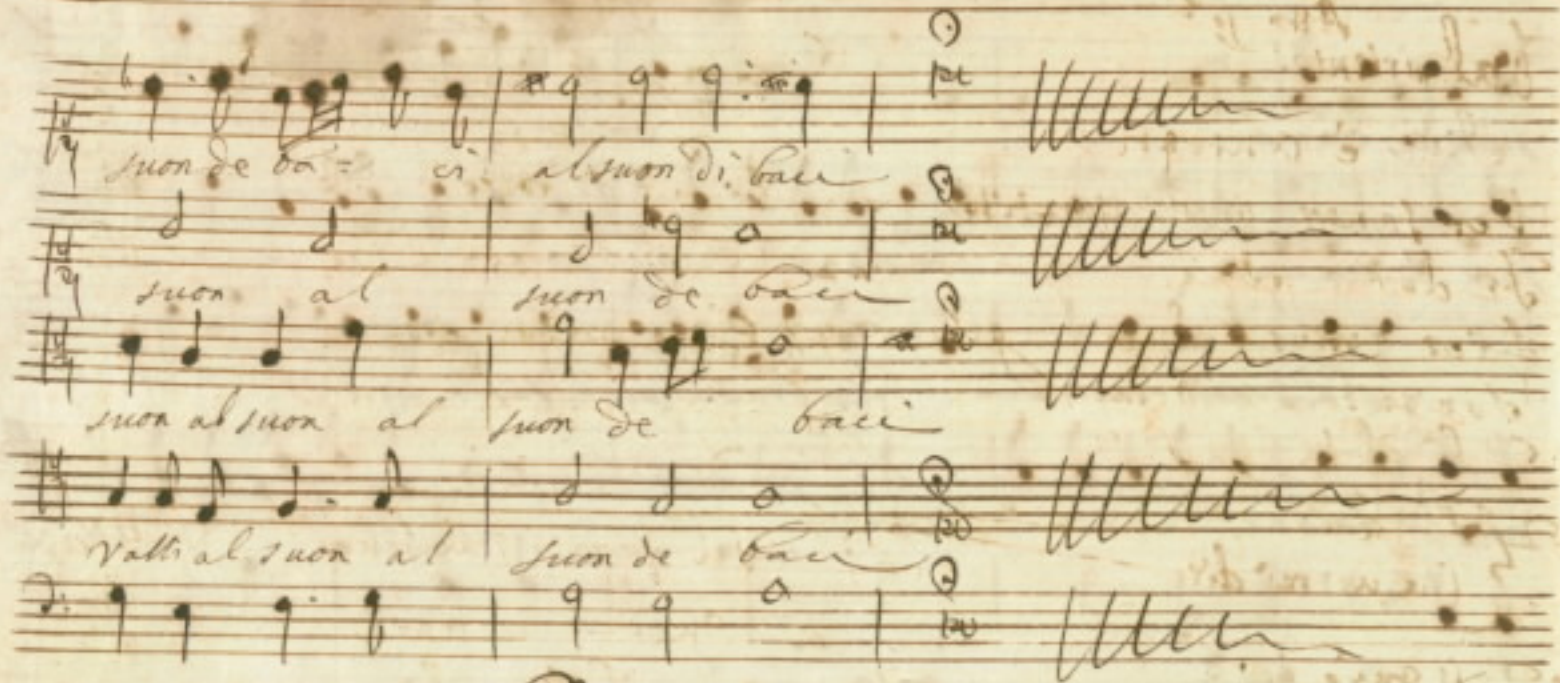 suon de ba = ci al suon di baci
suon al suon de baci
suon al suon al suon de baci
al suon al suon de baci